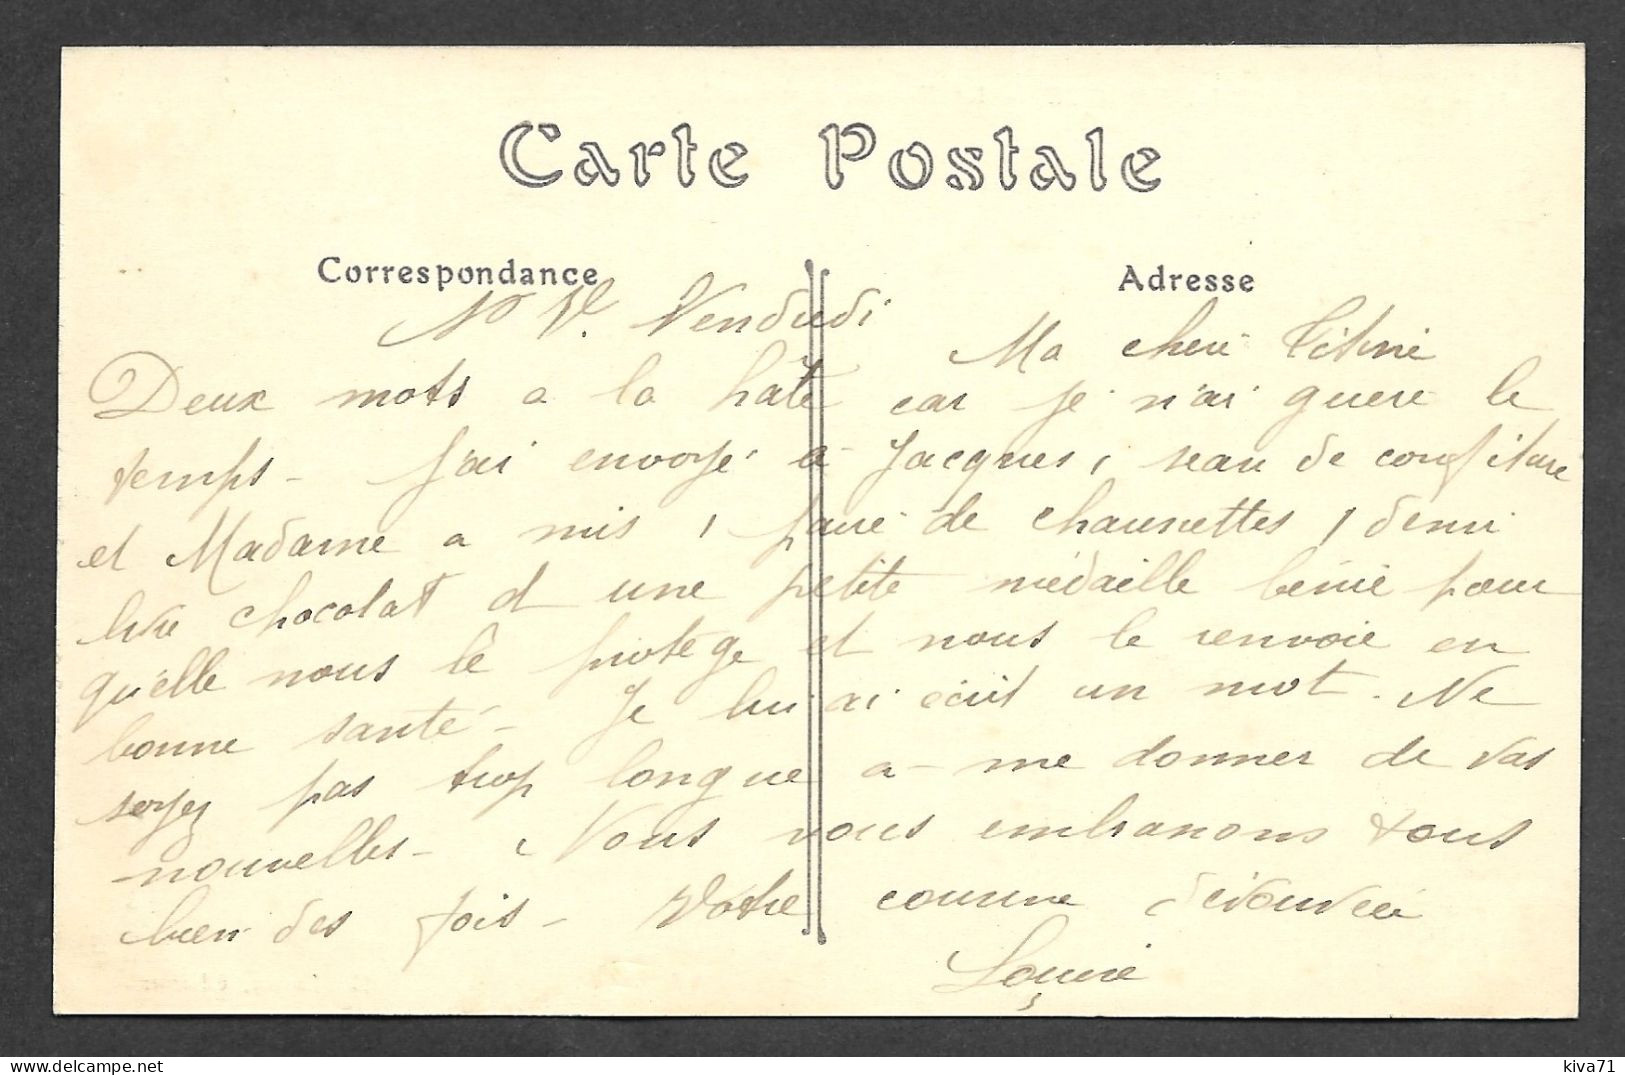 Carte Postale
Correspondance
Adresse
Vendredi
Ma cheré Titine
Deux mots a la hâte car je n'ai gueré le
temps - J'ai envoyé a Jacques 1 seau de confiture
et Madame a mis 1 paire de chaussettes 1 demi
livre chocolat et une petite médaille bénie pour
qu'elle nous le protège et nous le renvoie en
bonne santé - Je lui ai écrit un mot. Ne
soyez pas trop longue a me donner de vos
nouvelles - Nous vous embrassons tous
bien des fois - Votre cousine dévouée
Louise
kiva71